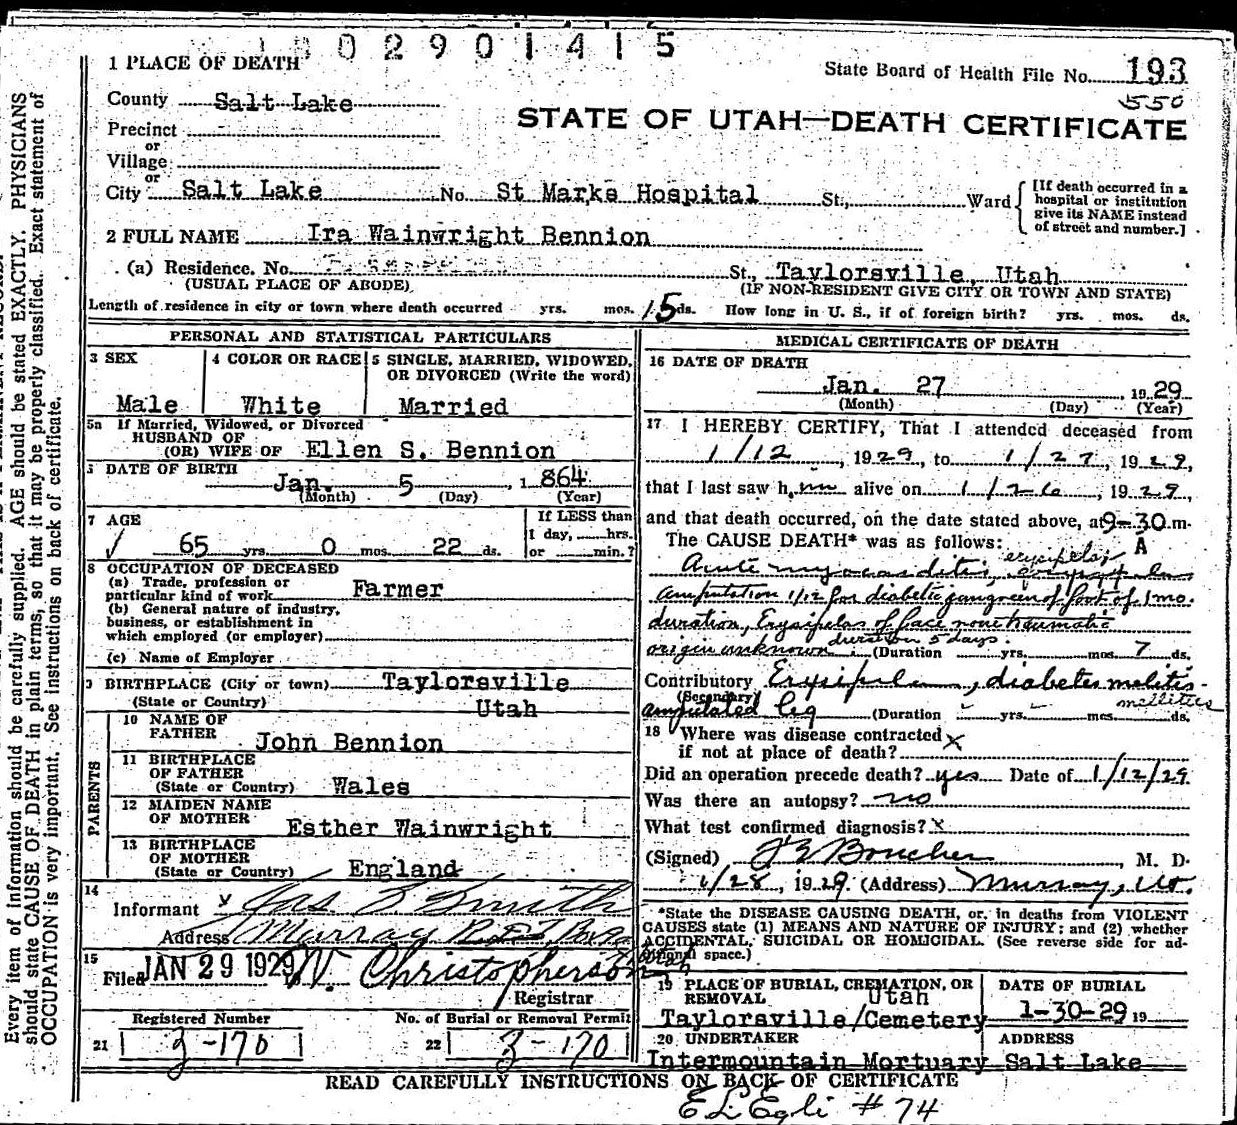 0 2 9 0 1 4 1 5
1 PLACE OF DEATH
State Board of Health File No. 193
550
County Salt Lake
STATE OF UTAH—DEATH CERTIFICATE
Precinct
or
Village
or
City Salt Lake No. St Marks Hospital St., Ward
[If death occurred in a hospital or institution give its NAME instead of street and number.]
2 FULL NAME Ira Wainwright Bennion
(a) Residence. No. St., Taylorsville, Utah
(USUAL PLACE OF ABODE) (IF NON-RESIDENT GIVE CITY OR TOWN AND STATE)
Length of residence in city or town where death occurred yrs. mos. 15 ds. How long in U. S., if of foreign birth? yrs. mos. ds.
PERSONAL AND STATISTICAL PARTICULARS
3 SEX
Male
4 COLOR OR RACE
White
5 SINGLE, MARRIED, WIDOWED,
OR DIVORCED (Write the word)
Married
5a If Married, Widowed, or Divorced
HUSBAND OF
(OR) WIFE OF Ellen S. Bennion
DATE OF BIRTH
Jan. 5, 1864
(Month) (Day) (Year)
7 AGE
65 yrs. 0 mos. 22 ds.
If LESS than
1 day, hrs.
or min.?
8 OCCUPATION OF DECEASED
(a) Trade, profession or
particular kind of work Farmer
(b) General nature of industry,
business, or establishment in
which employed (or employer)
(c) Name of Employer
BIRTHPLACE (City or town) Taylorsville
(State or Country) Utah
PARENTS
10 NAME OF
FATHER John Bennion
11 BIRTHPLACE
OF FATHER
(State or Country) Wales
12 MAIDEN NAME
OF MOTHER Esther Wainwright
13 BIRTHPLACE
OF MOTHER
(State or Country) England
14
Informant Jas. Smith
Address Murray
15
Filed JAN 29 1929 W. Christopherson
Registrar
Registered Number
21 3-170
No. of Burial or Removal Permit
22 3-170
MEDICAL CERTIFICATE OF DEATH
16 DATE OF DEATH
Jan. 27, 1929
(Month) (Day) (Year)
17 I HEREBY CERTIFY, That I attended deceased from
1/12, 1929, to 1/27, 1929,
that I last saw him alive on 1/26, 1929,
and that death occurred, on the date stated above, at 9-30 m.
A
The CAUSE DEATH* was as follows:
erysipelas
Acute myocarditis,
amputation 1/12 for diabetic gangreen of foot of 1 mo.
duration, Erysipelas of face nontraumatic
duration 5 days.
origin unknown (Duration yrs. mos. 7 ds.
Contributory Erysipelas, diabetes melitis
(Secondary) mellitus
amputated leg (Duration yrs. mos. ds.
18 Where was disease contracted
if not at place of death? x
Did an operation precede death? yes Date of 1/12/29
Was there an autopsy? no
What test confirmed diagnosis? x
(Signed) Boucher, M. D.
1/28, 1929. (Address) Murray, Ut.
*State the DISEASE CAUSING DEATH, or, in deaths from VIOLENT
CAUSES state (1) MEANS AND NATURE OF INJURY; and (2) whether
ACCIDENTAL, SUICIDAL OR HOMICIDAL. (See reverse side for ad-
ditional space.)
19 PLACE OF BURIAL, CREMATION, OR
REMOVAL Utah
Taylorsville/Cemetery
DATE OF BURIAL
1-30-29 19
20 UNDERTAKER
Intermountain Mortuary
ADDRESS
Salt Lake
READ CAREFULLY INSTRUCTIONS ON BACK OF CERTIFICATE
E L Egli #74
Every item of Information should be carefully supplied. AGE should be stated EXACTLY. PHYSICIANS
should state CAUSE OF DEATH in plain terms, so that it may be properly classified. Exact statement of
OCCUPATION is very important. See instructions on back of certificate.